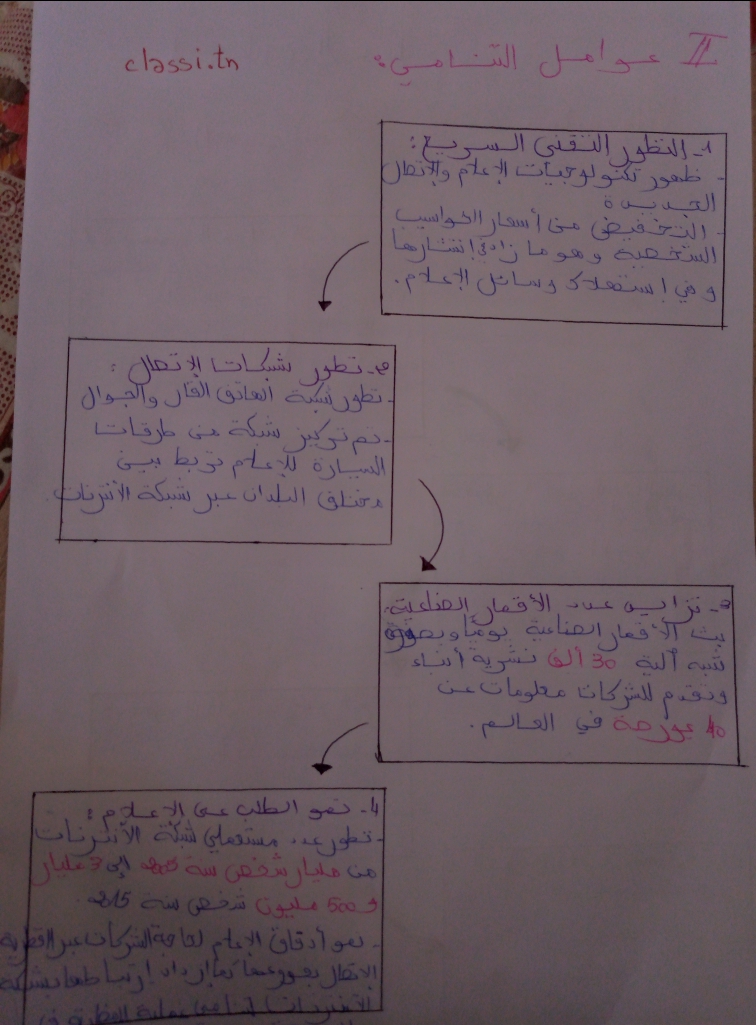 II عوامل التنامي:
classi.tn
1- التطور التقني السريع:
- ظهور تكنولوجيات الإعلام والإتصال
الجديدة
- التخفيض من أسعار الحواسيب
الشخصية وهو ما زاد في إنتشارها
و في إستهلاك وسائل الإعلام.
2- تطور شبكات الإتصال:
- تطور شبكة الهاتف القار والجوال
- تم تركيز شبكة من طرقات
السيارة للإعلام تربط بين
مختلف البلدان عبر شبكة الأنترنات
3- تزايد عدد الأقمار الصناعية:
تبث الأقمار الصناعية يوميا وبصورة
شبه آلية 30 ألف نشرية أنباء
وتقدم للشركات معلومات عن
40 بورصة في العالم.
4- نمو الطلب على الإعلام:
- تطور عدد مستعملي شبكة الأنترنات
من مليار شخص سنة 2005 إلى 3 مليار
و 500 مليون شخص سنة 2015.
- نمو أدفاق الإعلام لحاجة الشركات عبر القطرية
الإتصال بفروعها كما إزداد إرتباطها بشبكة